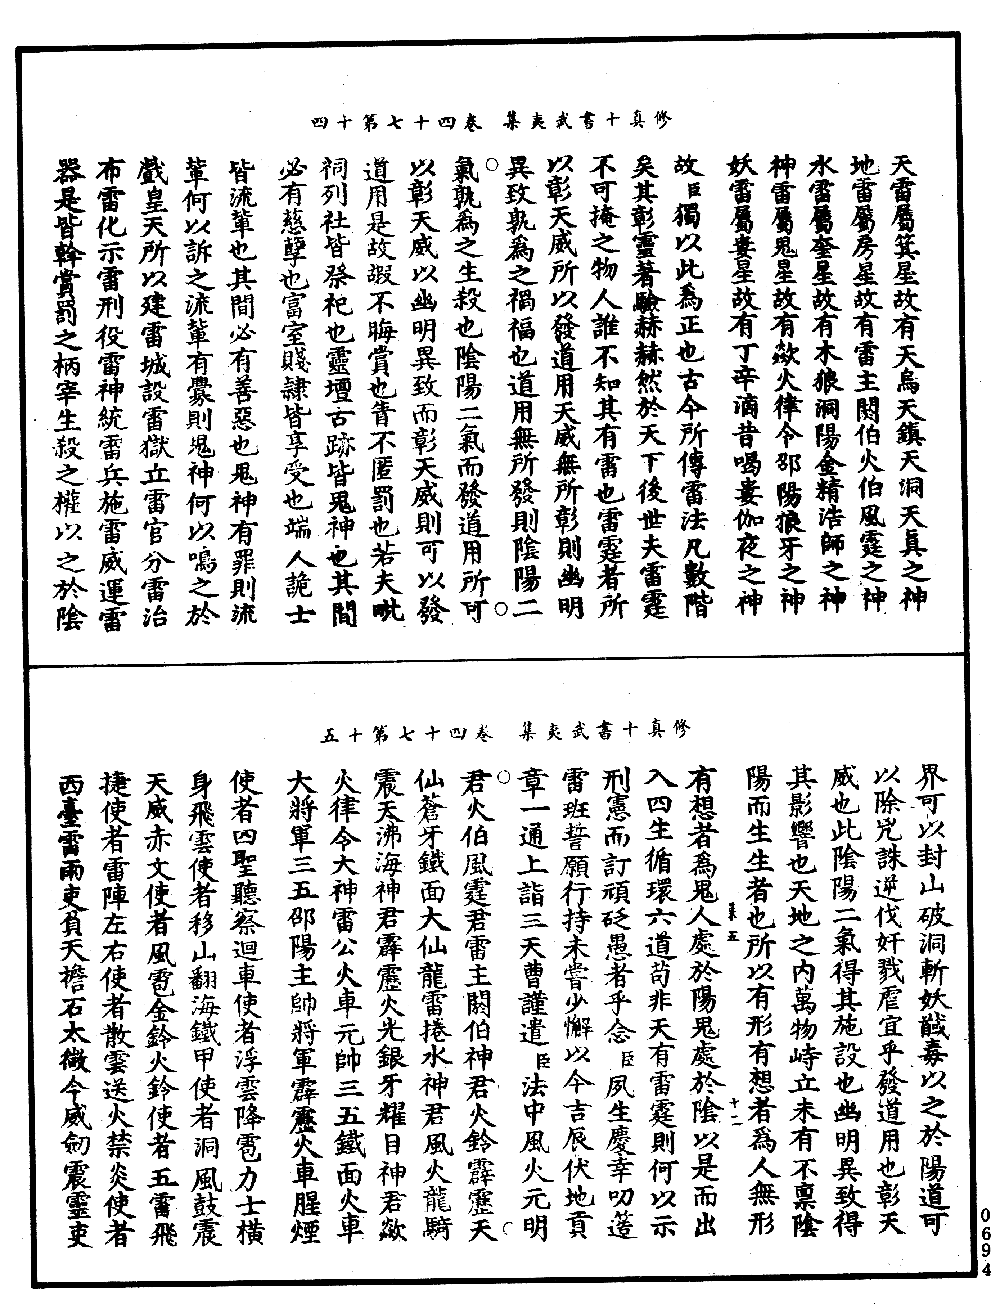 修真十書武夷集　卷四十七第十四
天雷屬箕星故有天烏天鎮天洞天真之神
地雷屬房星故有雷主閼伯火伯風霆之神
水雷屬奎星故有木狼洞陽金精浩師之神
神雷屬鬼星故有欻火律令邵陽狼牙之神
妖雷屬婁星故有丁辛滴昔喝婁伽夜之神
故臣獨以此為正也古今所傳雷法凡數階
矣其彰靈著驗赫赫然於天下後世夫雷霆
不可掩之物人誰不知其有雷也雷霆者所
以彰天威所以發道用天威無所彰則幽明
異致孰為之禍福也道用無所發則陰陽二
氣孰為之生殺也陰陽二氣而發道用所可
以彰天威以幽明異致而彰天威則可以發
道用是故嘏不晦賞也眚不匿罰也若夫毗
祠列社皆祭祀也靈壇古跡皆鬼神也其間
必有慈孽也富室賤隸皆享受也端人詭士
皆流輩也其間必有善惡也鬼神有罪則流
輩何以訴之流輩有釁則鬼神何以鳴之於
戲皇天所以建雷城設雷獄立雷官分雷治
布雷化示雷刑役雷神統雷兵施雷威運雷
器是皆幹賞罰之柄宰生殺之權以之於陰
修真十書武夷集　卷四十七第十五
界可以封山破洞斬妖馘毒以之於陽道可
以除兇誅逆伐奸戮虐宜乎發道用也彰天
威也此陰陽二氣得其施設也幽明異致得
其影響也天地之內萬物峙立未有不禀陰
陽而生生者也所以有形有想者為人無形
有想者為鬼人處於陽鬼處於陰以是而出
入四生循環六道苟非天有雷霆則何以示
刑憲而訂頑砭愚者乎念臣夙生慶幸叨簉
雷班誓願行持未嘗少懈以今吉辰伏地貢
章一通上詣三天曹謹遣臣法中風火元明
君火伯風霆君雷主閼伯神君火鈴霹靂天
仙蒼牙鐵面大仙龍雷捲水神君風火龍騎
震天沸海神君霹靂火光銀牙耀目神君欻
火律令大神雷公火車元帥三五鐵面火車
大將軍三五邵陽主帥將軍霹靂火車腥煙
使者四聖聽察迴車使者浮雲降雹力士橫
身飛雲使者移山翻海鐵甲使者洞風鼓震
天威赤文使者風雹金鈴火鈴使者五雷飛
捷使者雷陣左右使者散雲送火禁炎使者
西臺雷雨吏負天擔石太微令威劒震靈吏
十二
0694